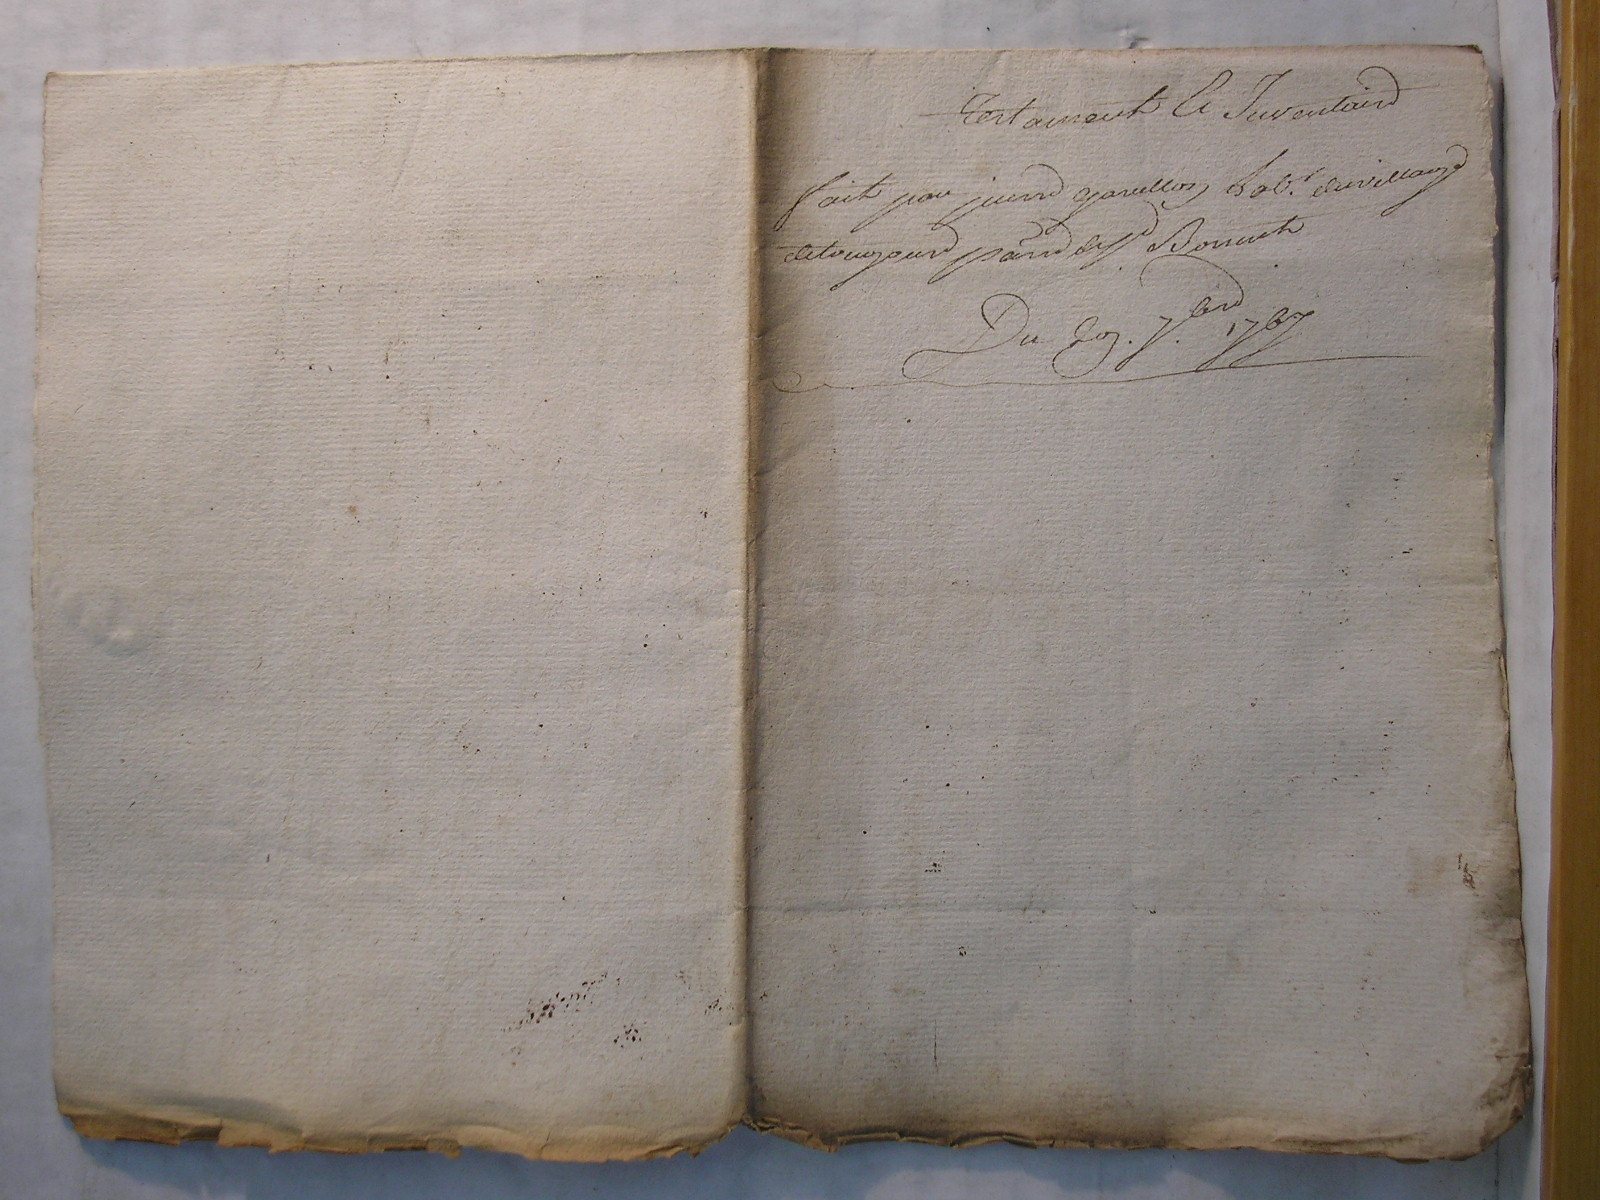 Testament Et Inventaire
fait par pierre gavellon hab.t du village
de toueyourd parr.e de St Bonnent
Du 20. 7bre 1767